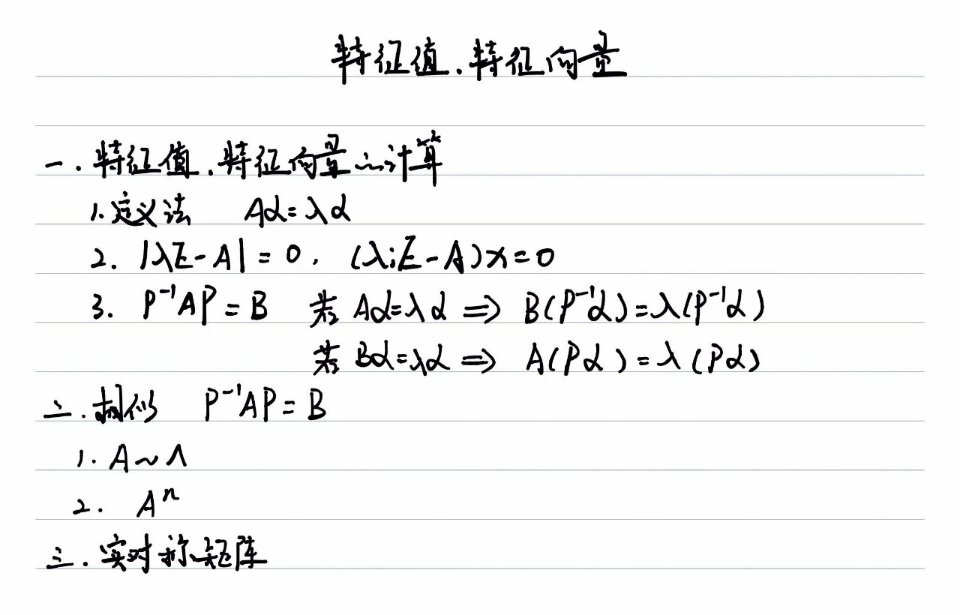 特征值、特征向量
一. 特征值、特征向量的计算
1. 定义法 Aα=λα
2. |λE-A|=0, (λᵢE-A)x=0
3. P⁻¹AP=B 若 Aα=λα ⇒ B(P⁻¹α)=λ(P⁻¹α)
若 Bα=λα ⇒ A(Pα)=λ(Pα)
二. 相似 P⁻¹AP=B
1. A~Λ
2. Aⁿ
三. 实对称矩阵